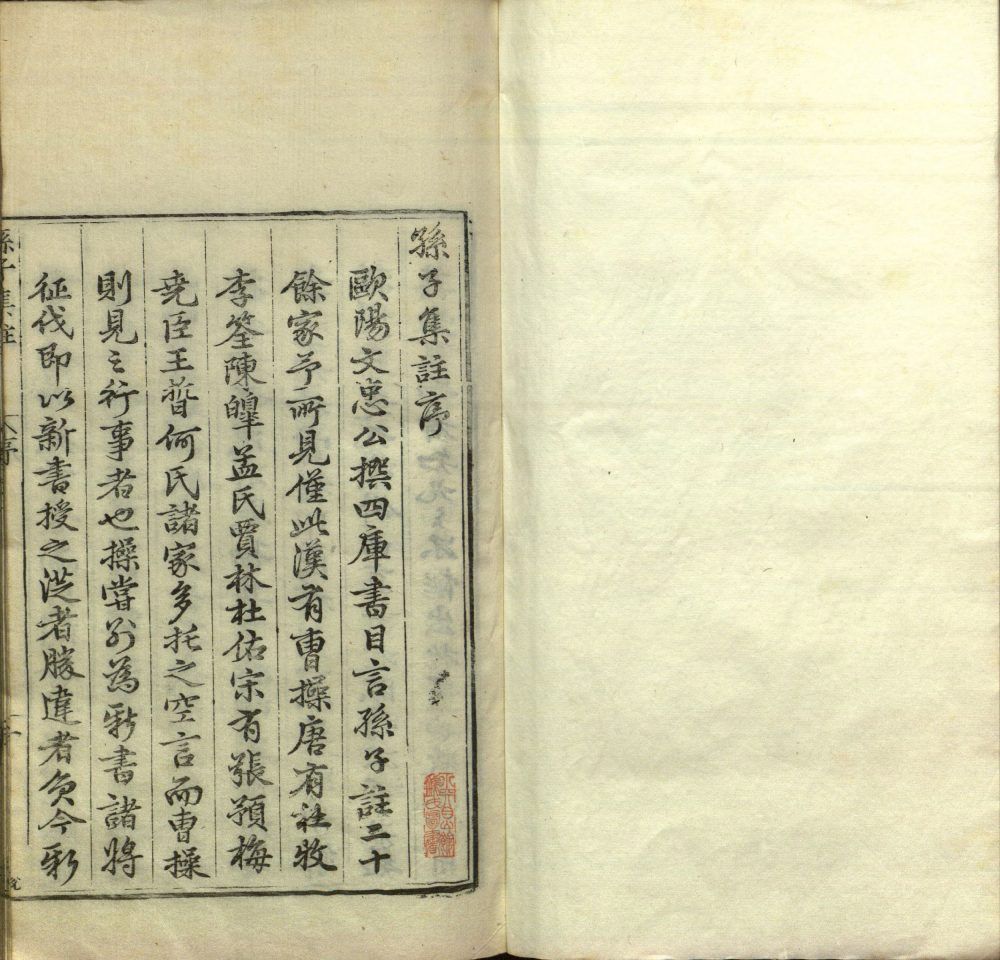 孫子集註序
歐陽文忠公撰四庫書目言孫子註二十
餘家予所見僅此漢有曹操唐有杜牧
李筌陳皥孟氏賈林杜佑宋有張預梅
堯臣王晳何氏諸家多托之空言而曹操
則見之行事者也操嘗别為新書諸將
征伐即以新書授之從者勝違者負今新
孫子集註
序